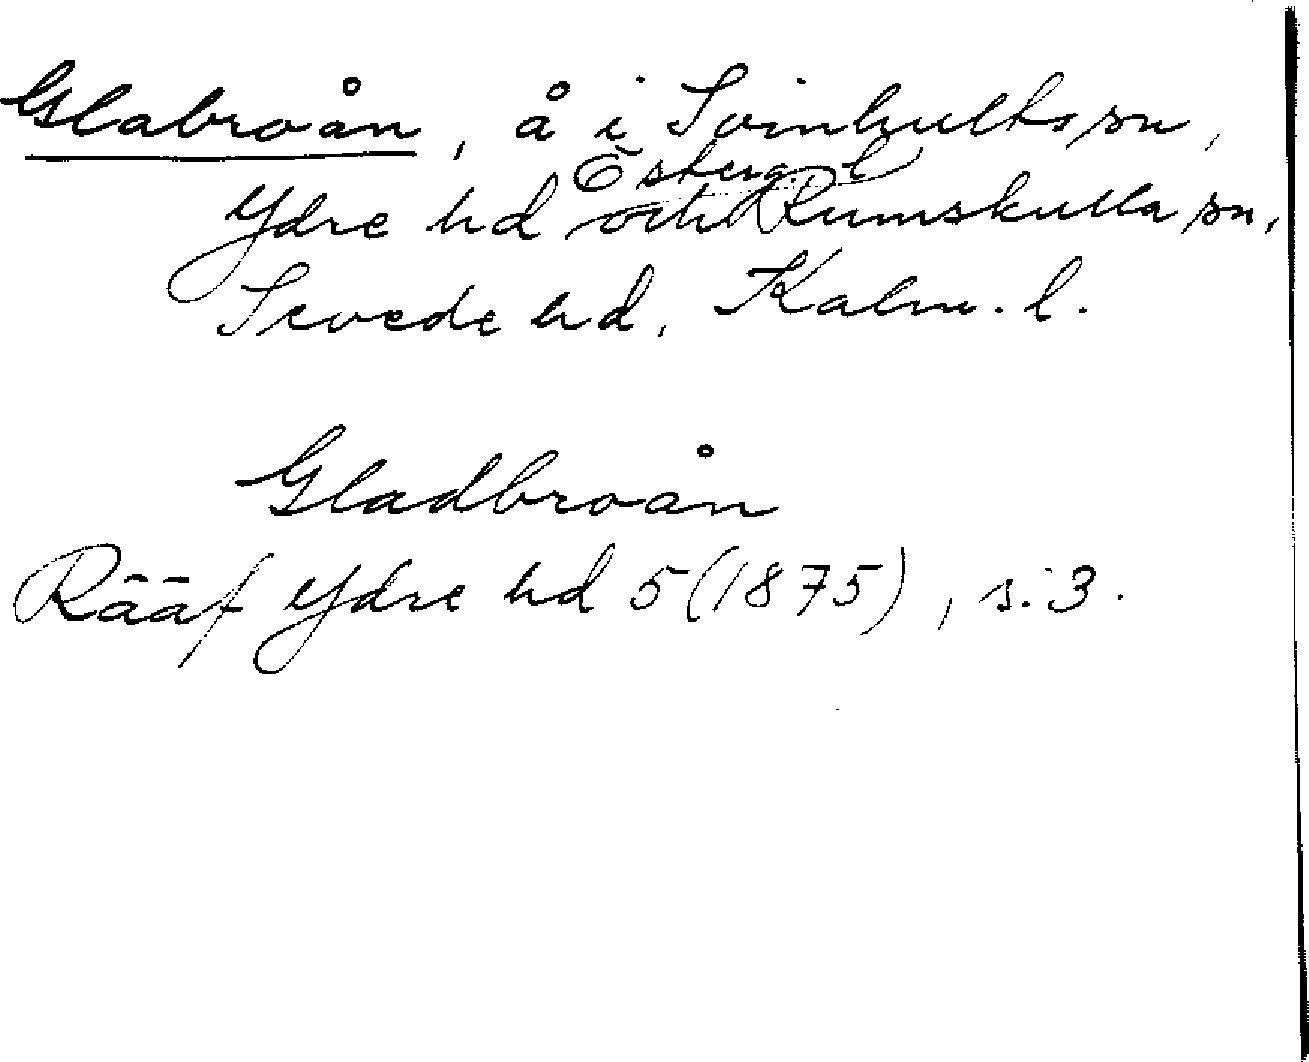 Glabroån, å i Svinhults sn,
Österg. l
Ydre hd och Rumskulla sn,
Sevede hd, Kalm. l.
Gladbroån
Rääf Ydre hd 5 (1875), s. 3.